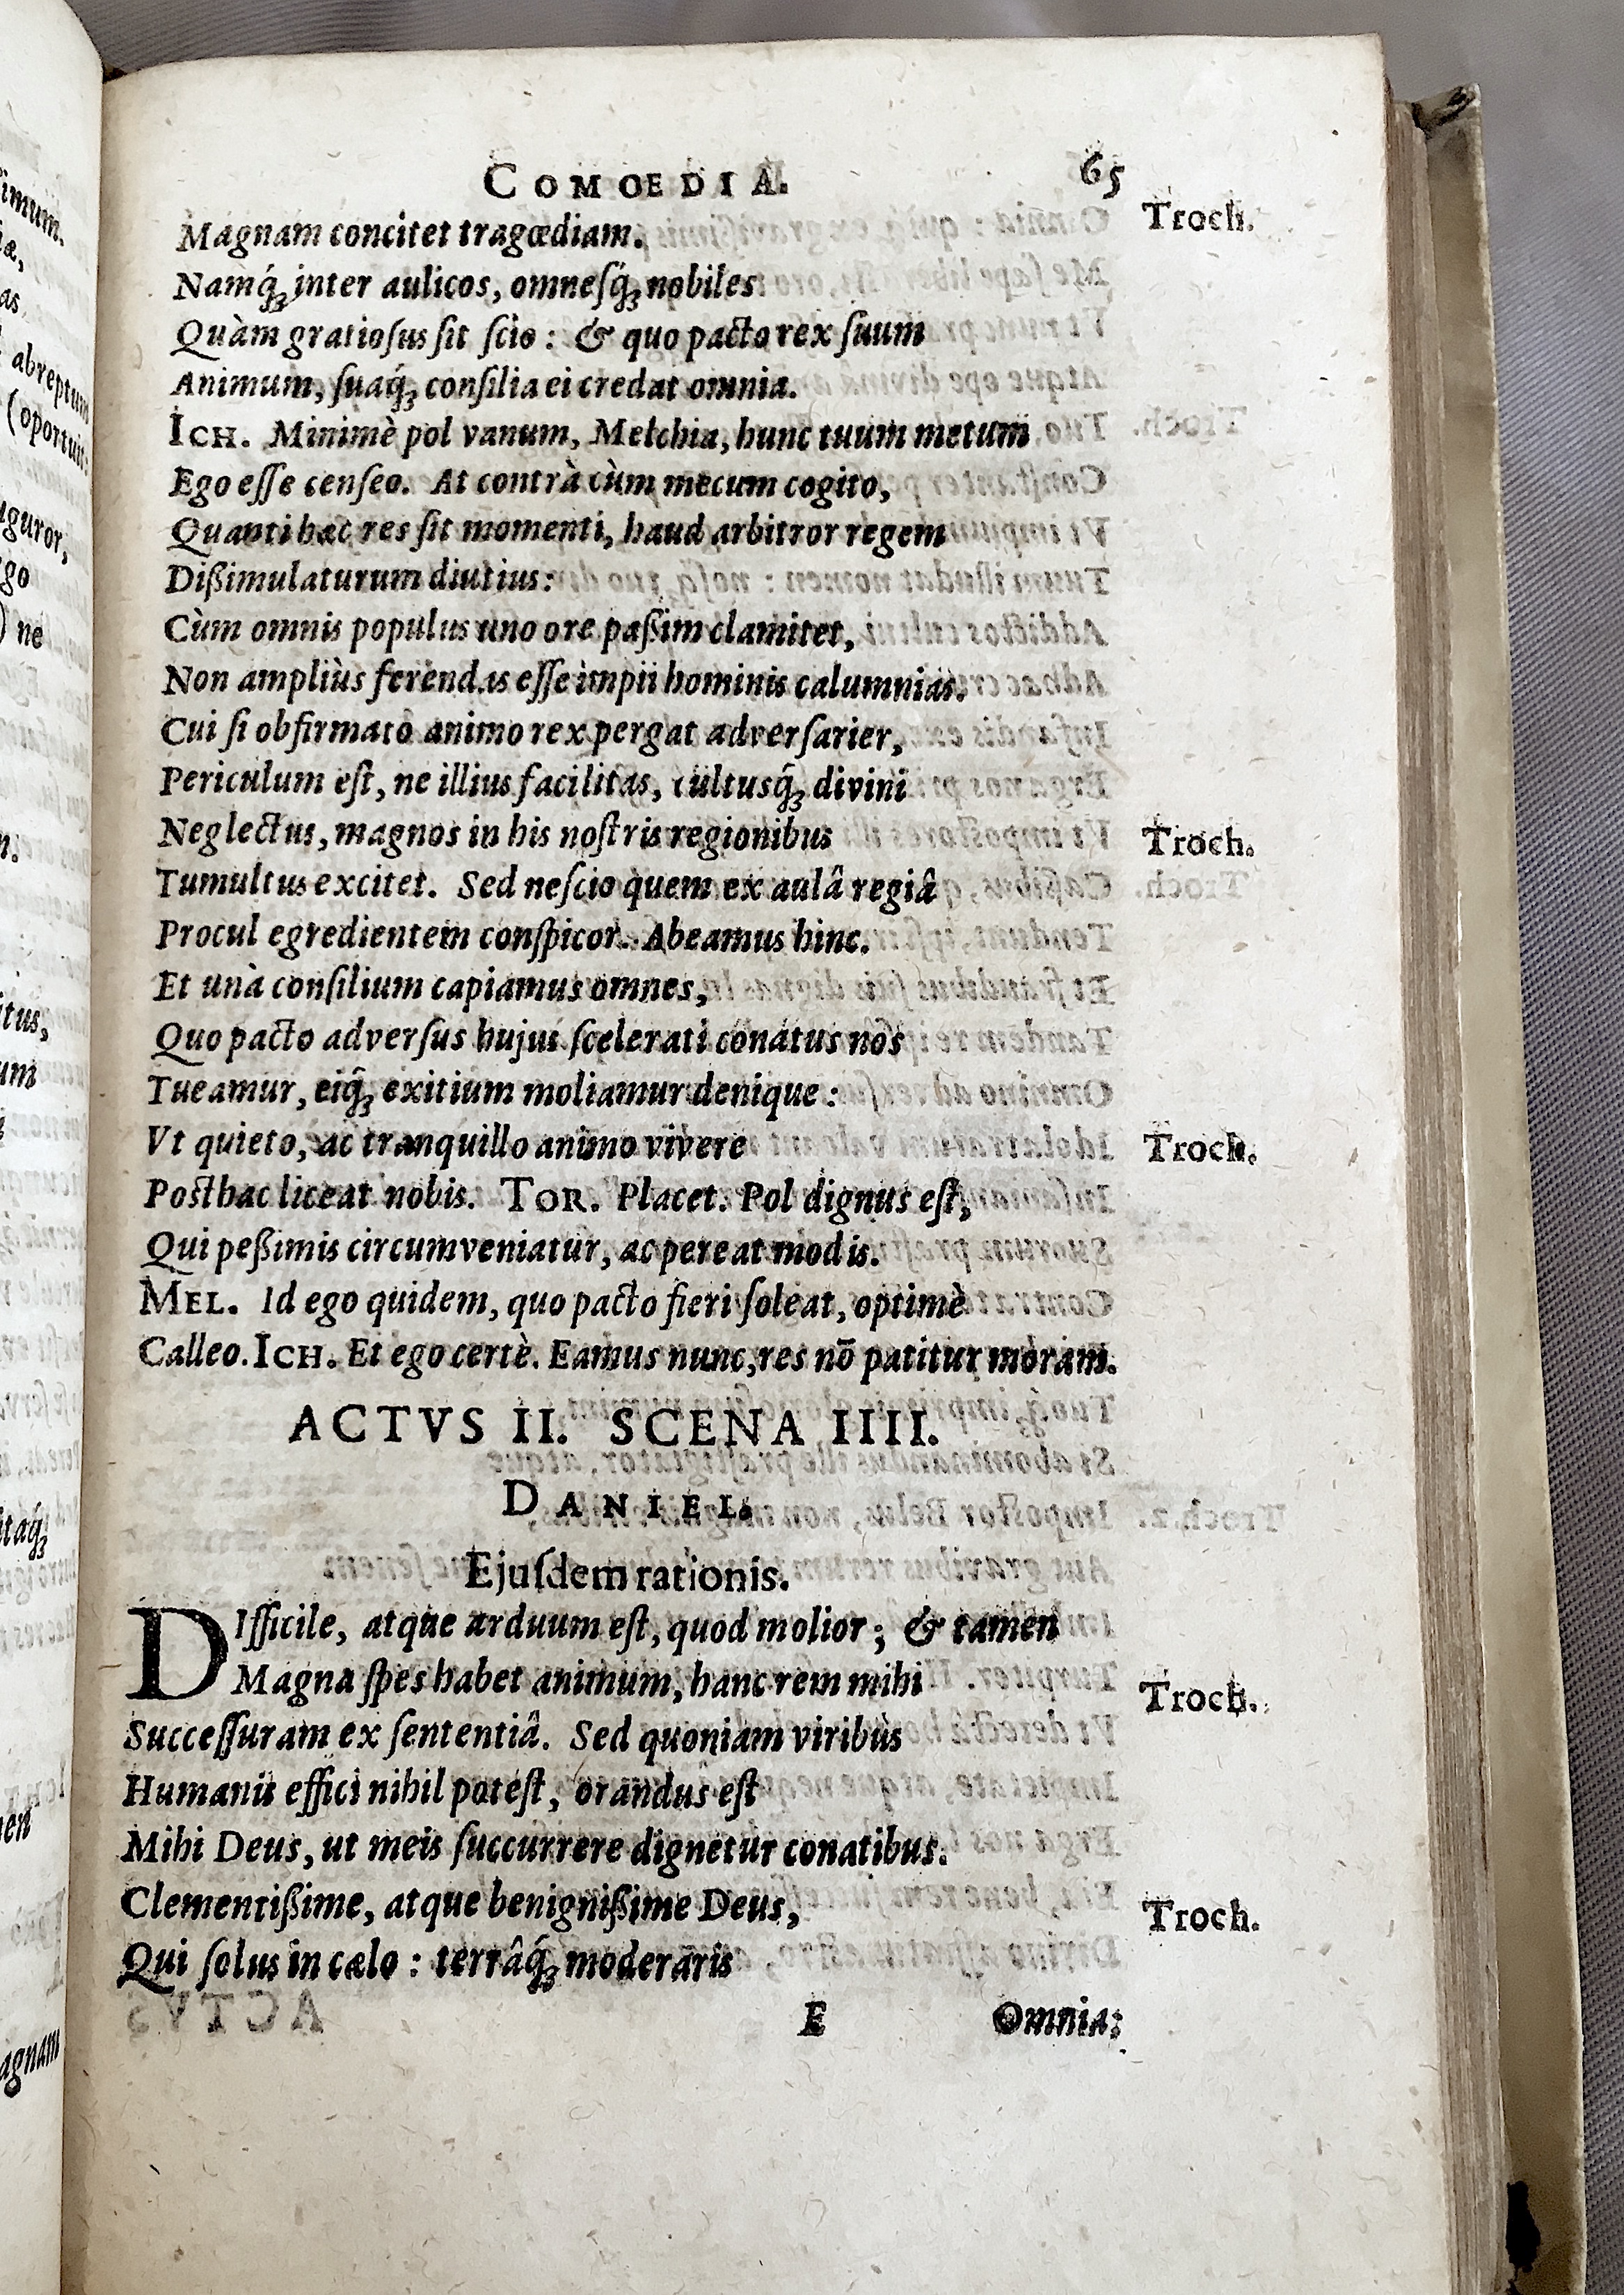 COMOEDIA. 65
Magnam concitet tragœdiam. Troch.
Namq́ꝫ inter aulicos, omneſq́ꝫ nobiles
Quàm gratioſus ſit ſcio: & quo pacto rex ſuum
Animum, ſuaq́ꝫ conſilia ei credat omnia.
ICH. Minimè pol vanum, Melchia, hunc tuum metum
Ego eſſe cenſeo. At contrà cùm mecum cogito,
Quanti hæc res ſit momenti, haud arbitror regem
Dißimulaturum diutius:
Cùm omnis populus uno ore paßim clamitet,
Non ampliùs ferendas eſſe impii hominis calumnias.
Cui ſi obfirmato animo rex pergat adverſarier,
Periculum eſt, ne illius facilitas, cultusq́ꝫ divini
Neglectus, magnos in his noſtris regionibus Troch.
Tumultus excitet. Sed neſcio quem ex aulâ regiâ
Procul egredientem conſpicor. Abeamus hinc.
Et unà conſilium capiamus omnes,
Quo pacto adverſus hujus ſcelerati conatus nos
Tueamur, eiq́ꝫ exitium moliamur denique:
Vt quieto, ac tranquillo animo vivere Troch.
Posthac liceat nobis. TOR. Placet. Pol dignus eſt,
Qui peßimis circumveniatur, ac pereat modis.
MEL. Id ego quidem, quo pacto fieri ſoleat, optimè
Calleo. ICH. Et ego certè. Eamus nunc, res nō patitur moram.
ACTVS II. SCENA IIII.
DANIEL.
Ejuſdem rationis.
DIfficile, atque arduum eſt, quod molior; & tamen
Magna ſpes habet animum, hanc rem mihi Troch.
Succeſſuram ex ſententiâ. Sed quoniam viribus
Humanis effici nihil poteſt, orandus eſt
Mihi Deus, ut meis ſuccurrere dignetur conatibus.
Clementißime, atque benignißime Deus, Troch.
Qui ſolus in cælo: terrâq́ꝫ moderaris
E Omnia: